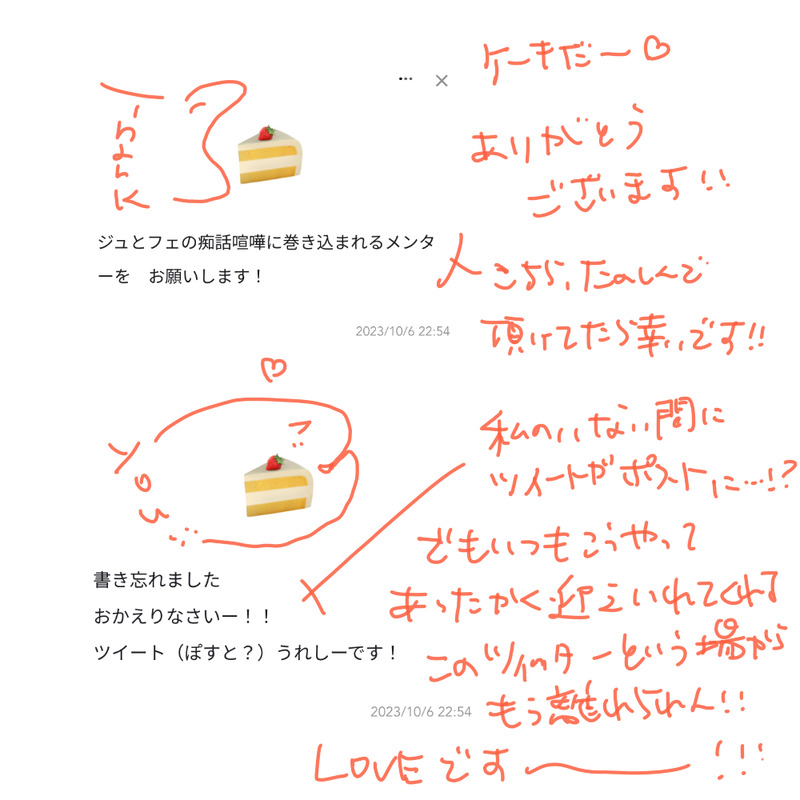 ケーキだー♡
Thank
ありがとう
ございます!!
ジュとフェの痴話喧嘩に巻き込まれるメンタ
ーを　お願いします！
こちら、たのしんで
頂けてたら幸いです!!
2023/10/6 22:54
私のいない間に
ツイートがポストに…!?
You
でもいつもこうやって
書き忘れました
あったかく迎えいれてくれる
おかえりなさいー！！
ツイート（ぽすと？）うれしーです！
このツイッターという場から
もう離れられん!!
2023/10/6 22:54
LOVEですー!!!